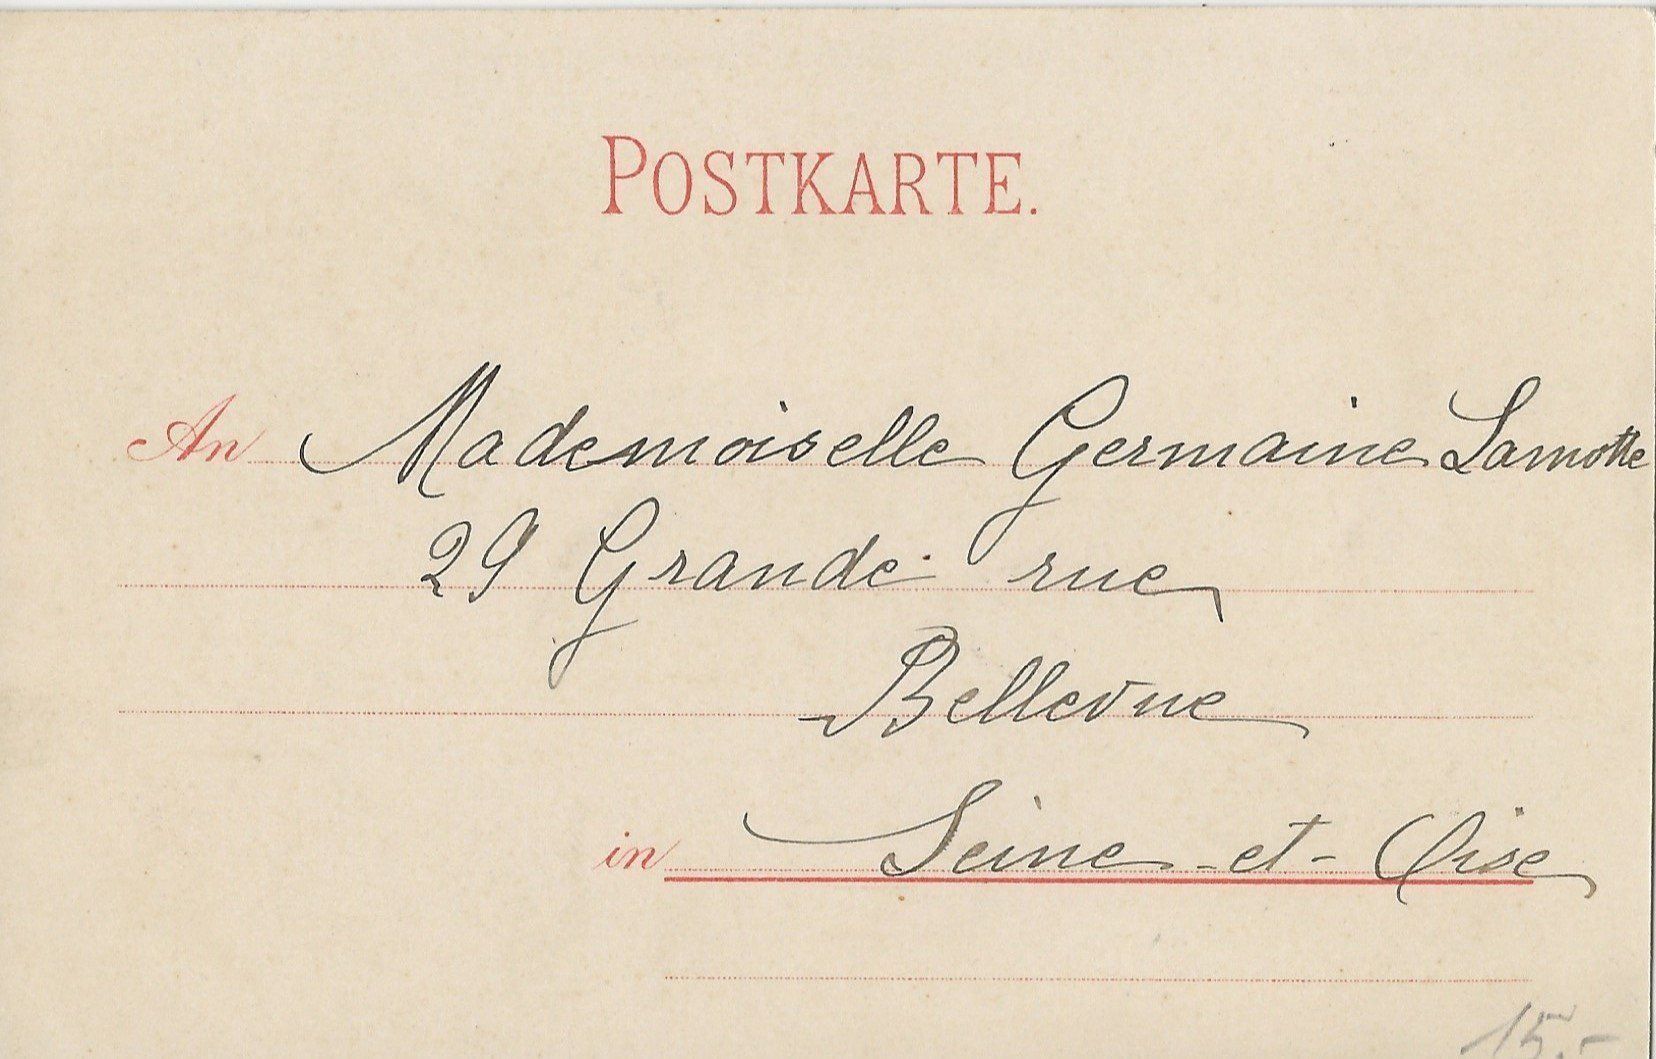 POSTKARTE.
An Mademoiselle Germaine Lamotte
29 Grande rue
Bellevue
in Seine-et-Oise
15.-